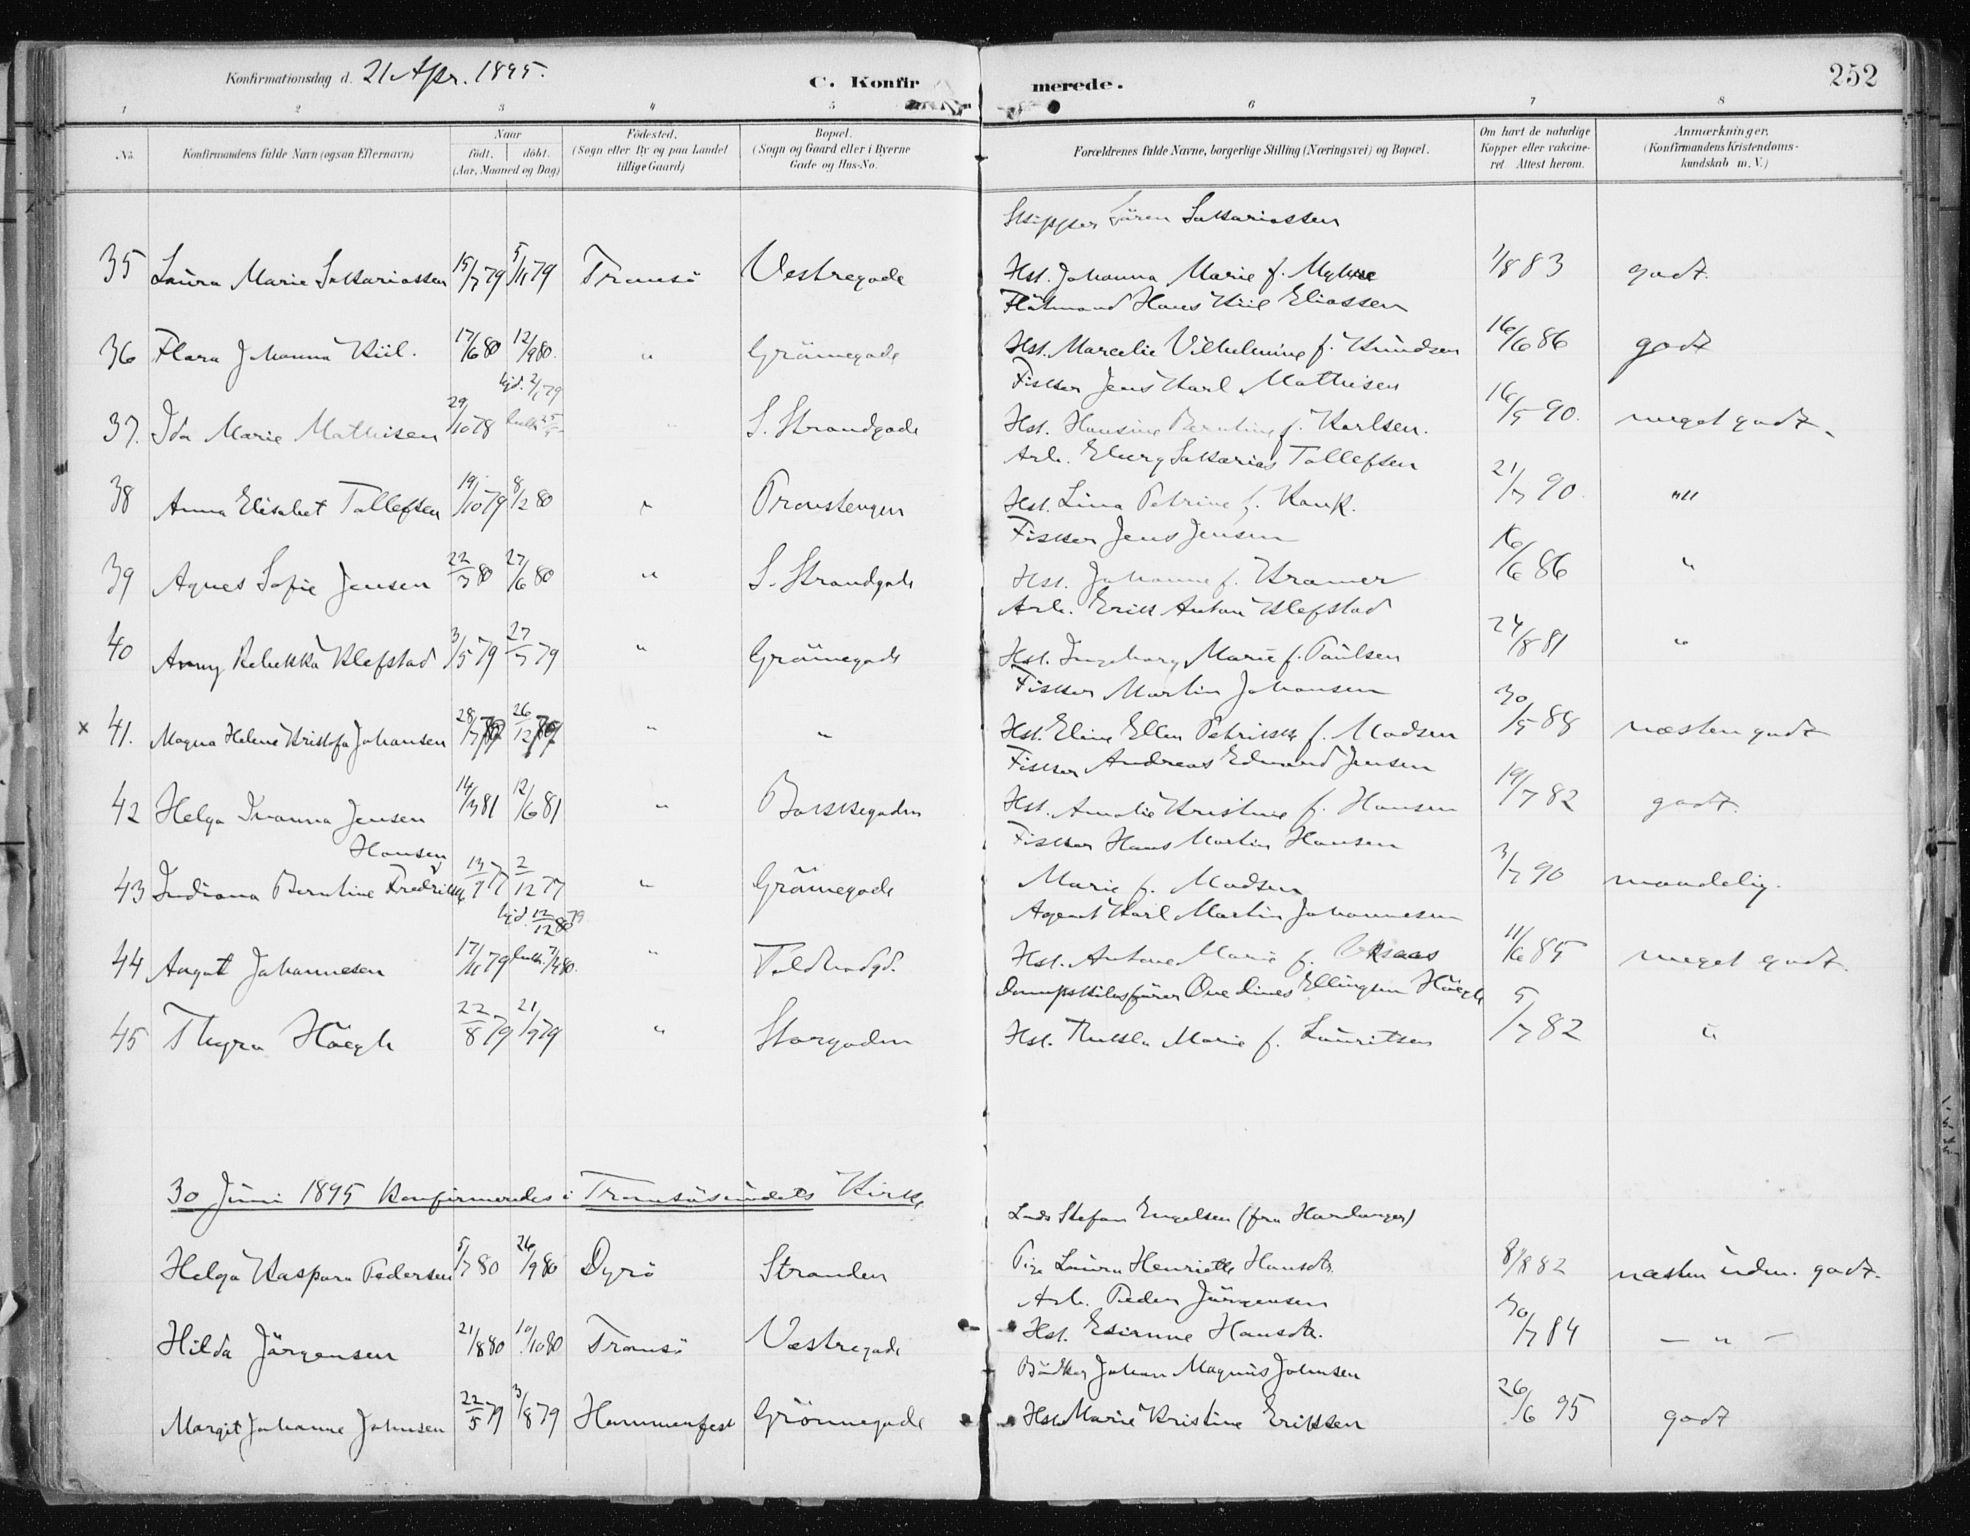 Konfirmationsdag d. 21 Apr. 1895.
C. Konfirmerede.
252
1 2 3 4 5 6 7 8
No. Konfirmandens fulde Navn (ogsaa Efternavn) Naar født, døbt. (Aar, Maaned og Dag) Fødested. (Sogn eller By og paa Landet tillige Gaard) Bopæl. (Sogn og Gaard eller i Byerne Gade og Hus-No. Forældrenes fulde Navne, borgerlige Stilling (Næringsvei) og Bopæl. Om havt de naturlige Kopper eller vakcineret. Attest herom. Anmærkninger. (Konfirmandens Kristendomskundskab m. V.)
Skipper Sören Sakariassen
35 Laura Marie Sakariassen 15/7 79 5/11 79 Tromsö Vestregade Hst. Johanna Marie f. Myhre 1/8 83 godt.
Flåtmand Hans Kiil Eliassen
36 Flara Johanna Kiil. 17/6 80 12/9 80. " Grönnegade Hst. Marcelie Vilhelmine f. Knudsen 16/6 86 godt
hjd. 2/1 79 Fisker Jens Karl Mathisen
37. Ida Marie Mathisen 29/10 78 " S. Strandgade Hst. Hansine Berntine f. Karlsen. 16/5 90. meget godt.
Arb. Elberg Sakarias Tollefsen
38 Anna Elisabet Tollefsen 19/10 79 8/2 80 " Pronstengen Hst. Lina Petrine f. Hauk. 21/7 90. "
Fisker Jens Jensen
39 Agnes Sofie Jensen 22/3 80 27/6 80 " S. Strandgade Hst. Johanne f. Kramer 16/6 86 "
Arb. Erik Anton Klefstad
40 Anny Rebekka Klefstad 3/5 79 27/7 79 " Grönnegade Hst. Ingeborg Marie f. Paulsen 24/8 81 "
Fisker Martin Johansen
x 41. Magna Helene Kristofa Johansen 28/7 79 26/12 79 " " Hst. Eline Ellen Petrikke f. Madsen 30/5 88 næsten godt
Fisker Andreas Edmund Jensen
42 Helga Ivanna Jensen 14/3 81 12/6 81 " Bakkegaden Hst. Amalie Kristine f. Hansen 19/7 82 godt.
Hansen Fisker Hans Martin Hansen
43 Indiana Berntine Fredrikke 13/7 77 2/12 77 " Grönnegade Marie f. Madsen 3/7 90 maadelig.
hjd. 12/12 79 Agent Karl Martin Johannesen
44 August Johannesen 17/11 79 7/4 80. " Toldbodgd. Hst. Antone Marie f. 11/6 85 meget godt.
Dampskibsförer Ove Dines Ellingsen Höegh
45 Thyra Höegh 22/8 79 21/9 79 " Storgaden Hst. Thekla Marie f. Lauritsen 5/7 82 "
30 Juni 1895 Konfirmeredes i Tromsösundets Kirke
Lods Stefan Engelsen (fra Hardanger)
Helga Kaspara Pedersen 5/7 80 26/9 80 Dyrö Stranden Pige Laura Henriette Hansdtr. 8/8 82 næsten uden. godt.
Arb. Peder Jürgensen
Hilda Jörgensen 21/8 80 10/10 80 Tromsö Vestregade Hst. Hansdtr. 30/7 84 — " —
Bödker Johan Magnus Johnsen
Margit Johanne Johnsen 22/5 79 3/8 79 Hammerfest Grönnegade Hst. Marie Kristine Eriksen 26/6 95 godt